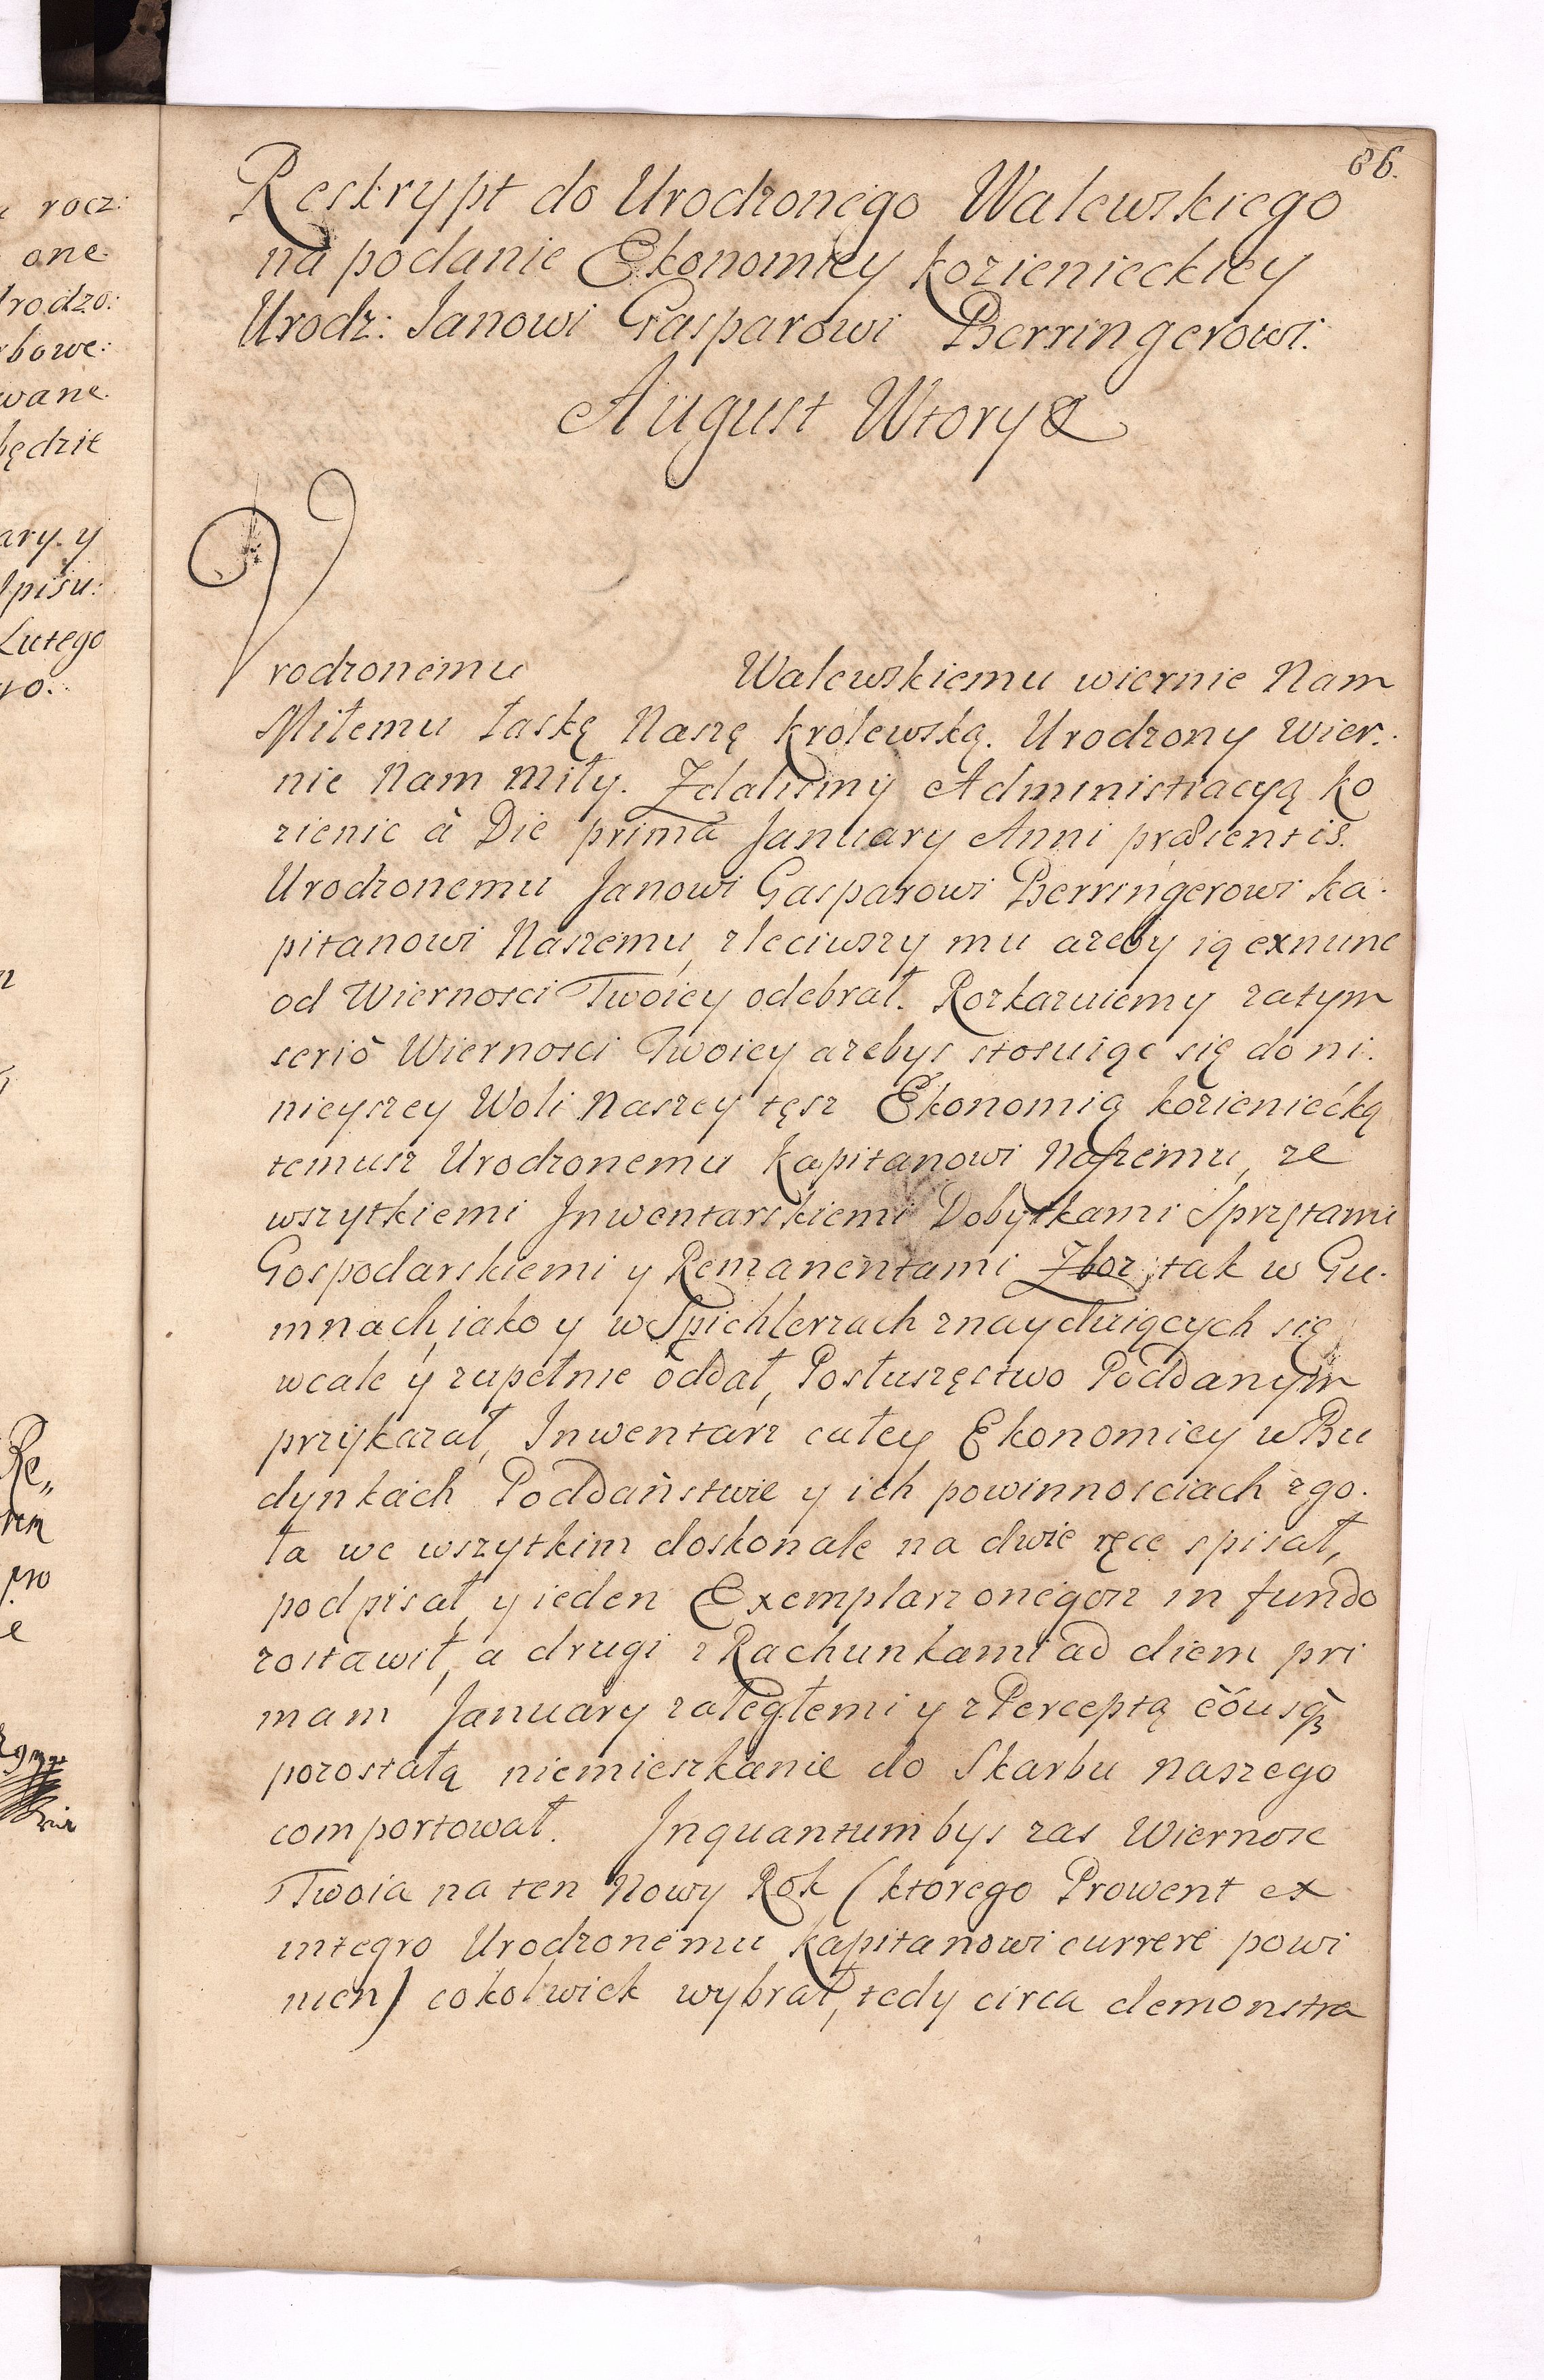 rocz:
one
rodzo:
rbowe:
wane
będzie
ary. y
Spisu:
Lutego
86.
Reskrypt do Urodzonego Walewskiego
na podanie Ekonomiey kozienieckiey
Urodz: Janowi Gasparowi Berringerowi.
August Wtory &
Vrodzonemu Walewskiemu wiernie Nam
Miłemu łaskę Naszę krolewską. Urodzony Wier:
nie Nam miły. Zdalismy Administracyą ko
zienic à Die prima January Anni præsentis.
Urodzonemu Janowi Gasparowi Berringerowi ka:
pitanowi Naszemu, zleciwszy mu azeby ią exnunc
od Wiernosci Twoiey odebrał. Rozkazuiemy zatym
seriò Wiernosci Twoiey azebys stosuiąc się do ni:
nieyszey Woli Naszey tęsz Ekonomią kozieniećką
temusz Urodzonemu kapitanowi Naszemu, ze
wszytkiemi Inwentarskiemi Dobytkami Sprzętami
Gospodarskiemi y Remanentami Zboz, tak w Gu:
mnach, iako y w Spichlerzach znayduiących się
wcale y zupełnie oddał, Posłuszęstwo Poddanym
przykazał, Inwentarz całey Ekonomiey w Bu
dynkach Poddaństwie y ich powinnosciach zgo:
ła we wszytkim doskonale na dwie ręce spisał,
podpisał, y ieden Exemplarz onegosz in fundo
zostawił, a drugi z Rachunkami ad diem pri
mam January zaległemi y z Perceptą eousq3
pozostałą niemieszkanie do Skarbu naszego
comportował. Inquantum bys zas Wiernosc
Twoia na ten Nowy Rok (ktorego Prowent ex
integro Urodzonemu kapitanowi currere powi
nien) cokolwiek wybrał, tedy circa demonstra